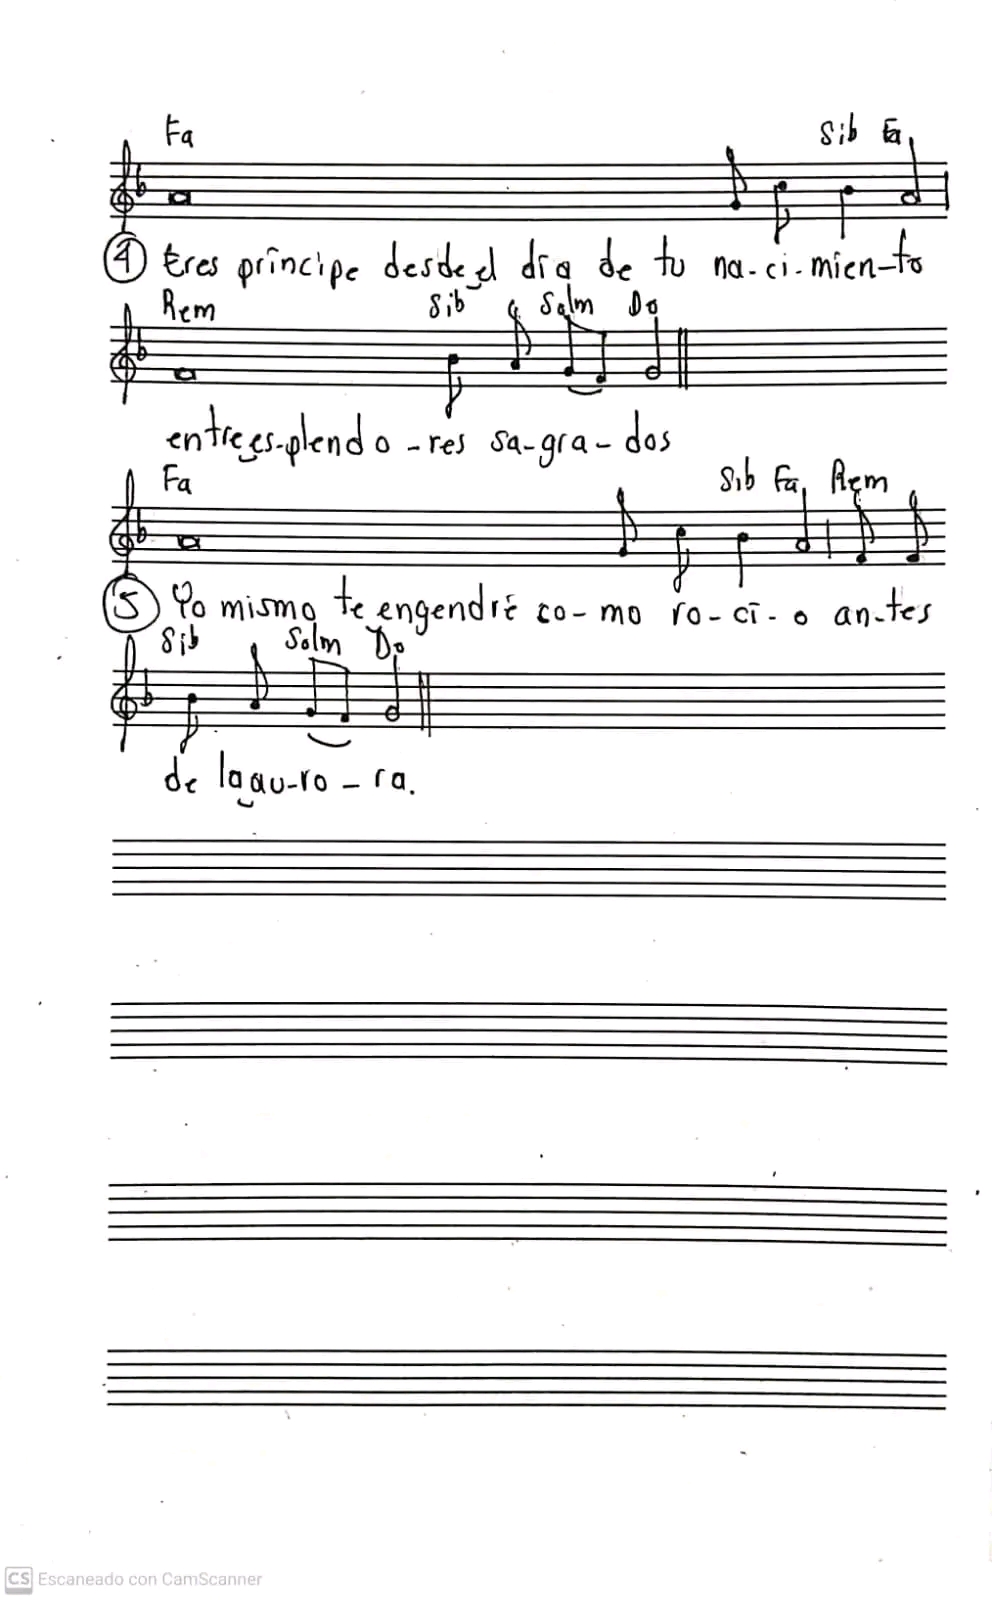 Fa Sib Fa
④ Eres príncipe desde el día de tu na-ci-mien-to
Rem Sib Solm Do
entre es-plendo-res sa-gra-dos
Fa Sib Fa Rem
⑤ Yo mismo te engendré co-mo ro-cí-o an-tes
Sib Solm Do
de la au-ro-ra.
CS Escaneado con CamScanner